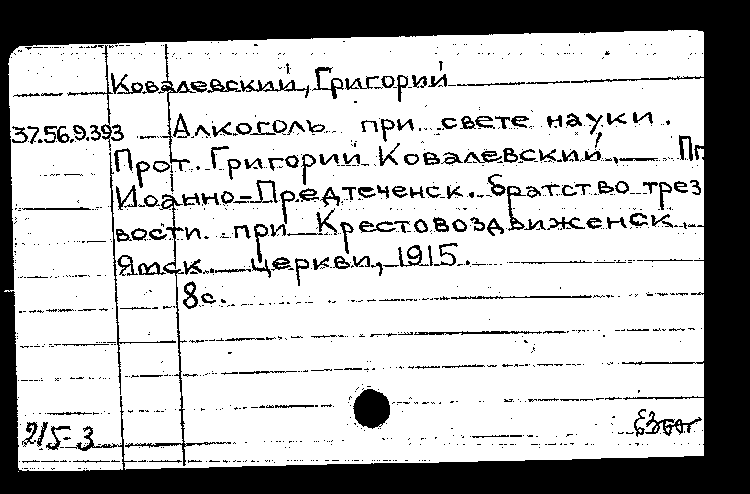 Ковалевский, Григорий
37.56.9.393 Алкоголь при свете науки.
Прот. Григорий Ковалевский. — Пг.
Иоанно-Предтеченск. братство трез
вости при Крестовоздвиженск.
Ямск. церкви, 1915.
8с.
215-3